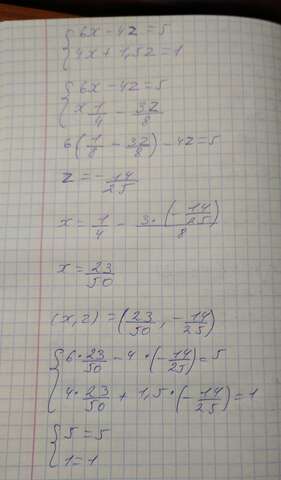 {6x-4z=5
{4x+1,5z=1
{6x-4z=5
{x 1/4 - 3z/8
6(1/8 - 3z/8) - 4z=5
z=-14/25
x=1/4 - 3·(-14/25)/8
x=23/50
(x,z)=(23/50, -14/25)
{6·23/50-4·(-14/25)=5
{4·23/50+1,5·(-14/25)=1
{5=5
{1=1